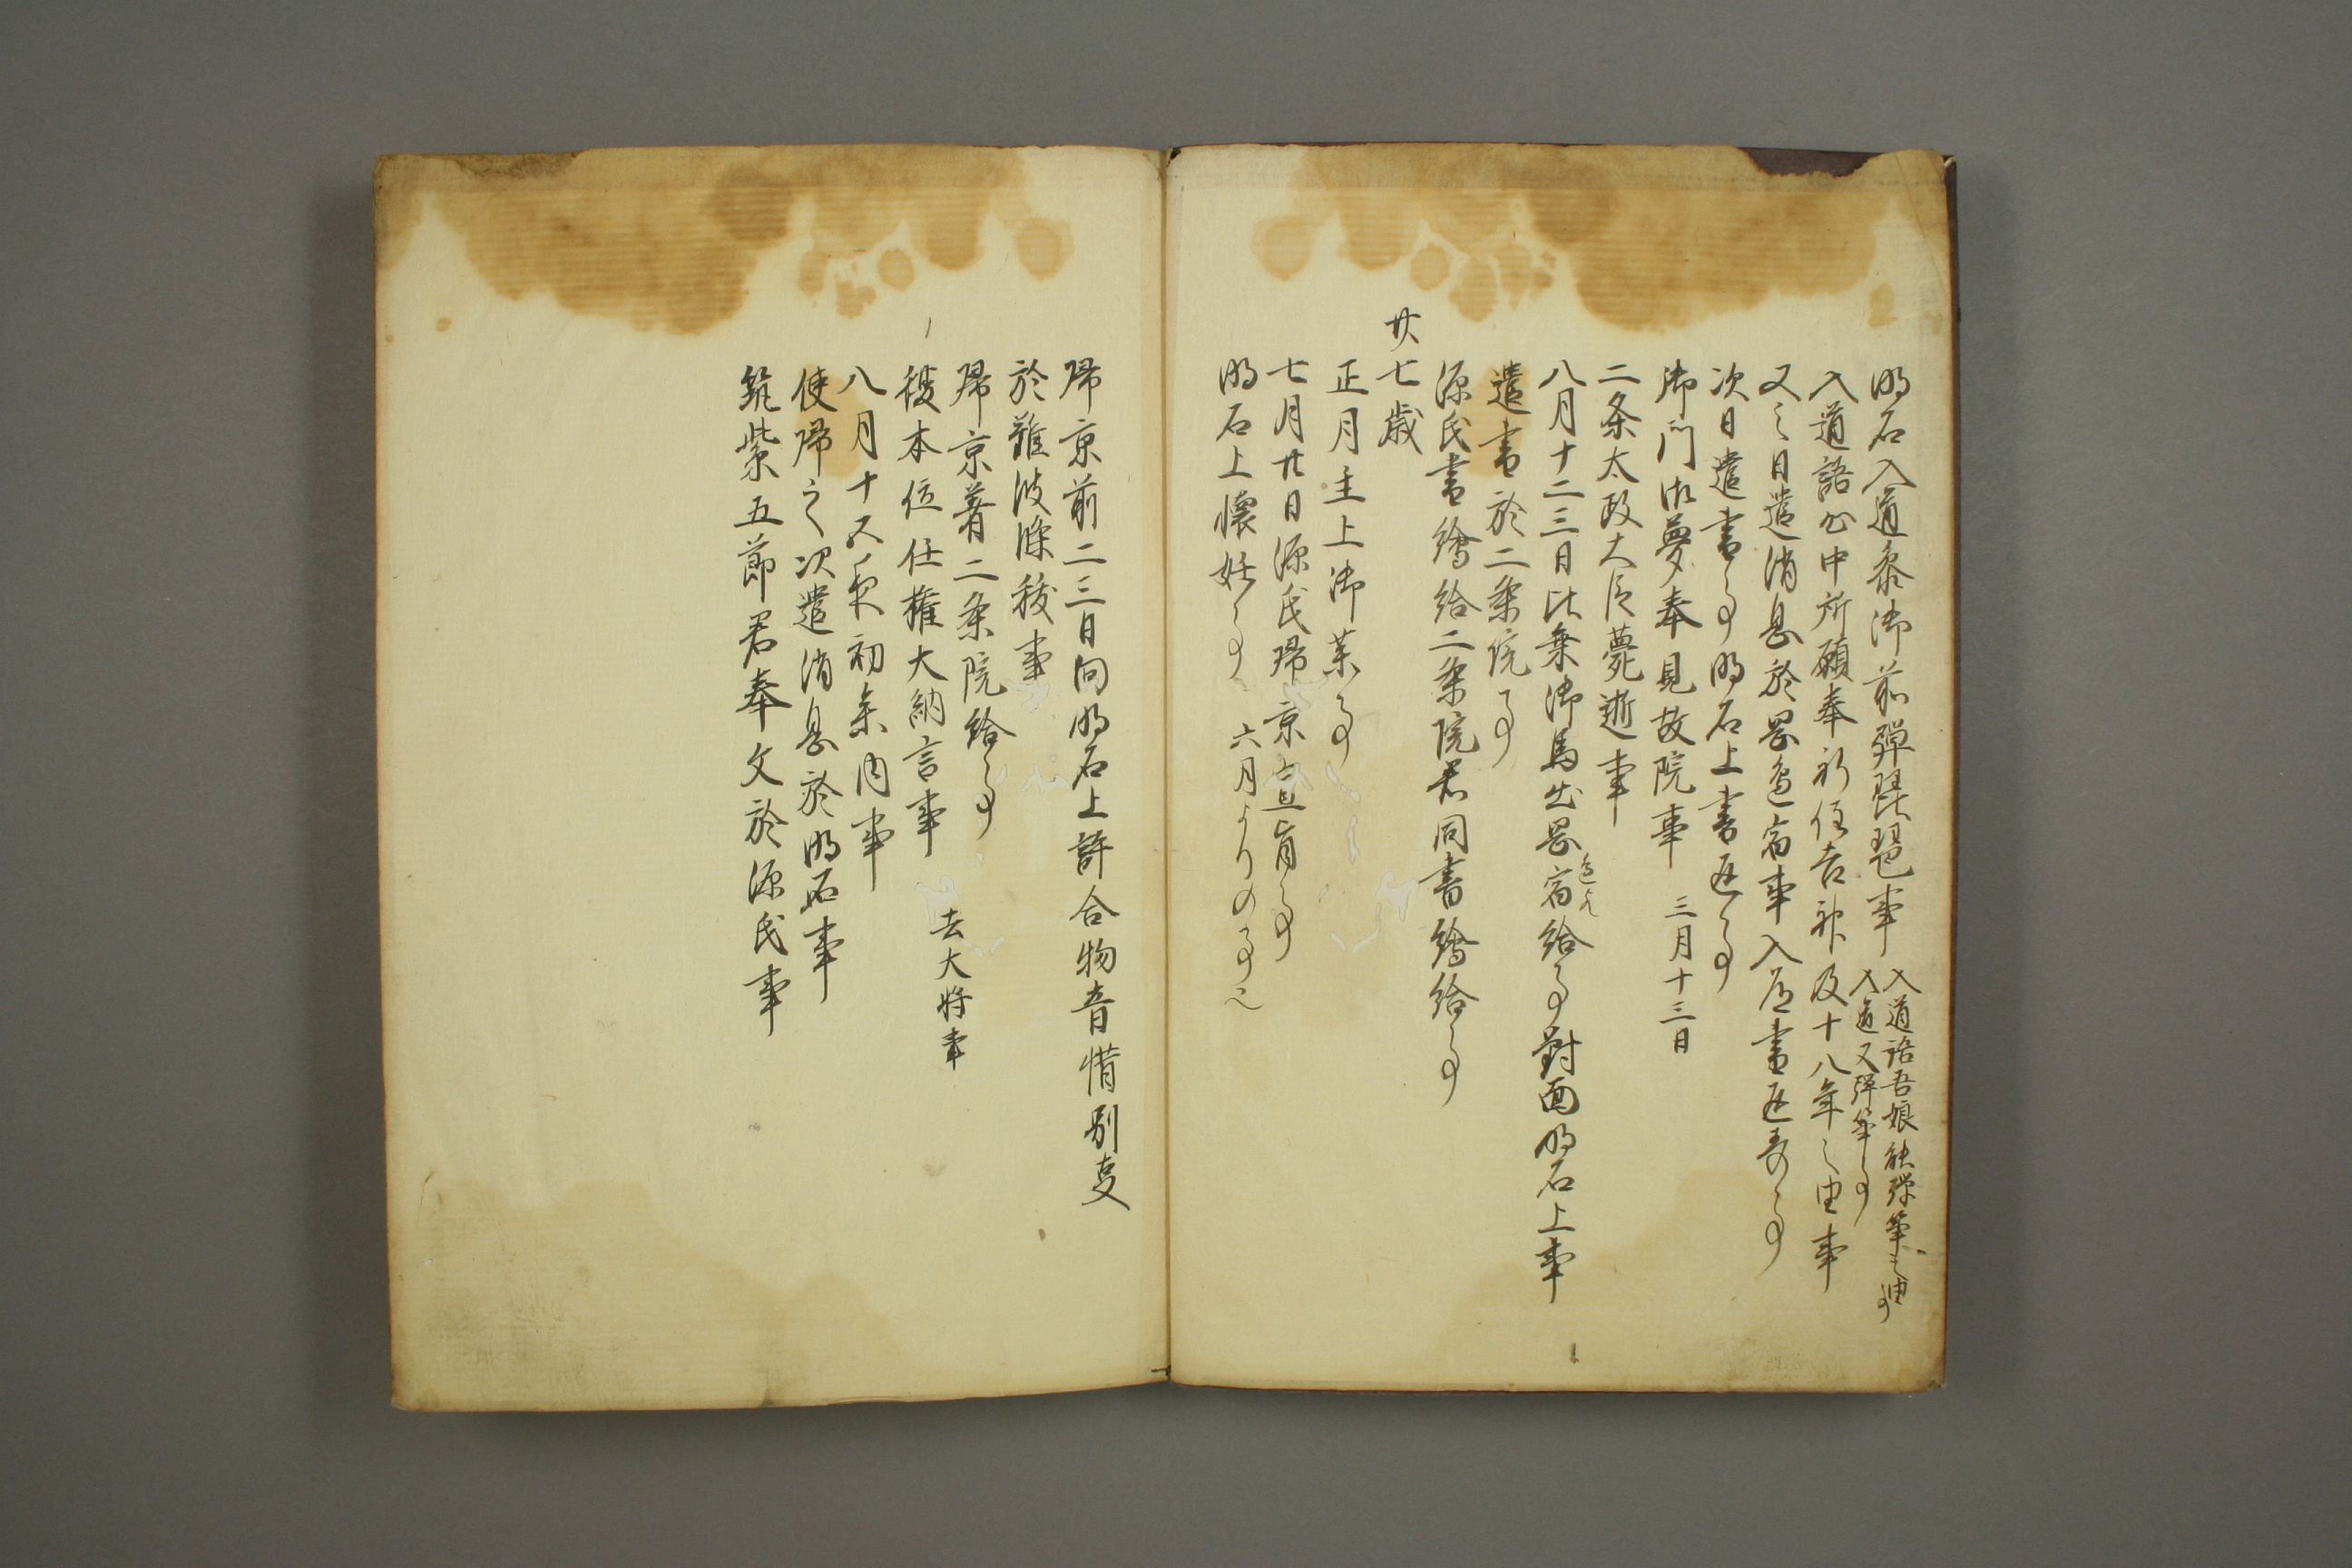 明石入道参御前弾琵琶事
入道語吾娘能弾箏之由事
入道又弾箏事
入道語心中所願奉祈住吉神及十八年之由事
又之日遣消息於岡邊宿事入道書返哥事
次日遣書事明石上書返事
御門御夢奉見故院事 三月十三日
二条太政大臣薨逝事
八月十二三日比乗御馬出岡宿給事對面明石上事
遣書於二条院事
源氏書繪給二条院君同書繪給事
廿七歳
正月主上御薬事
七月廿日源氏帰京宣旨事
明石上懐妊事 六月よりの事也
帰京前二三日向明石上許合物音惜別事
於難波浦祓事
帰京着二条院給事
復本位任権大納言事 去大将事
八月十五夜初参内事
使帰之次遣消息於明石事
筑紫五節君奉文於源氏事